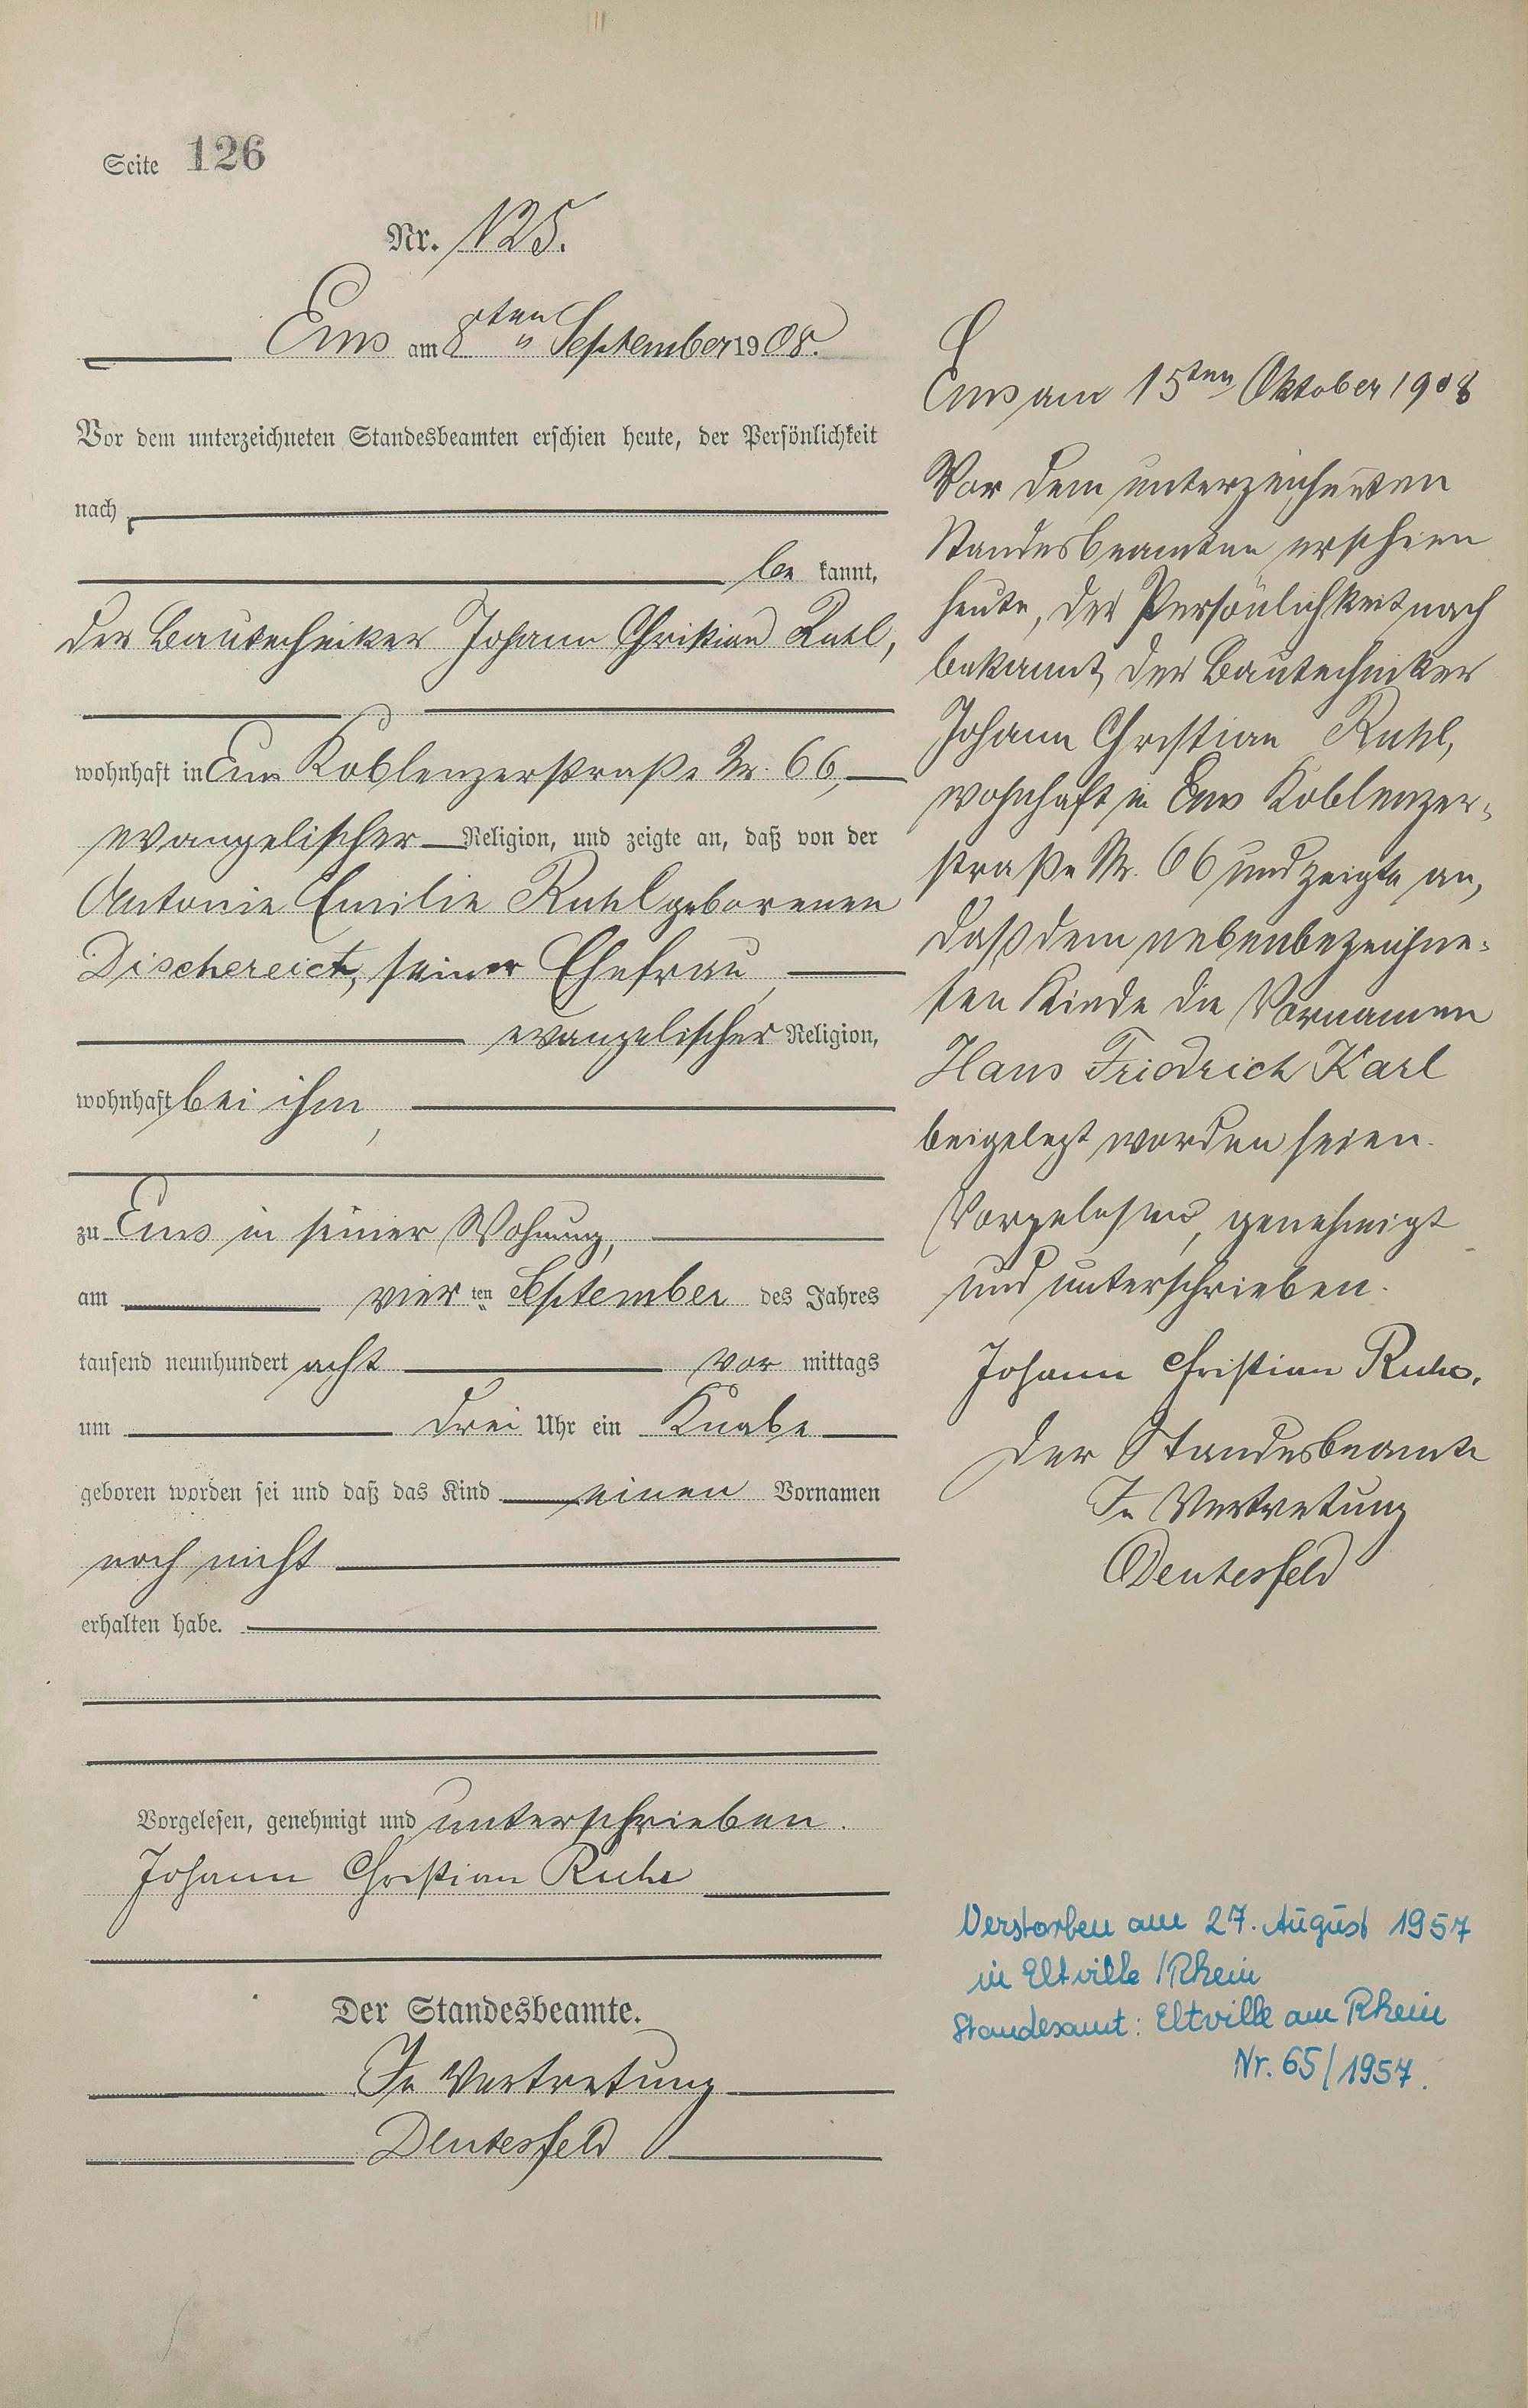 Seite 126
Nr. 125.
Ems am 8ten September 1908.
Vor dem unterzeichneten Standesbeamten erschien heute, der Persönlichkeit
nach
be kannt,
der Bautechniker Johann Christian Ruhl,
wohnhaft in Ems Koblenzerstraße Nr. 66,
evangelischer Religion, und zeigte an, daß von der
Antonie Emilie Ruhl geborenen
Dischereict, seiner Ehefrau,
evangelischer Religion,
wohnhaft bei ihm,
zu Ems in seiner Wohnung,
am vier ten September des Jahres
tausend neunhundert acht vor mittags
um drei Uhr ein Knabe
geboren worden sei und daß das Kind einen Vornamen
noch nicht
erhalten habe.
Vorgelesen, genehmigt und unterschrieben.
Johann Christian Ruhl
Der Standesbeamte.
In Vertretung
Deutesfeld
Ems am 15ten Oktober 1908
Vor dem unterzeichneten
Standesbeamten erschien
heute, der Persönlichkeit nach
bekannt, der Bautechniker
Johann Christian Ruhl,
wohnhaft in Ems Koblenzer-
straße Nr. 66 und zeigte an,
daß dem nebenbezeichne-
ten Kinde die Vornamen
Hans Friedrich Karl
beigelegt worden seien.
Vorgelesen, genehmigt
und unterschrieben.
Johann Christian Ruhl.
Der Standesbeamte
In Vertretung
Deutesfeld
Verstorben am 27. August 1957
in Eltville / Rhein
Standesamt: Eltville am Rhein
Nr. 65/1957.